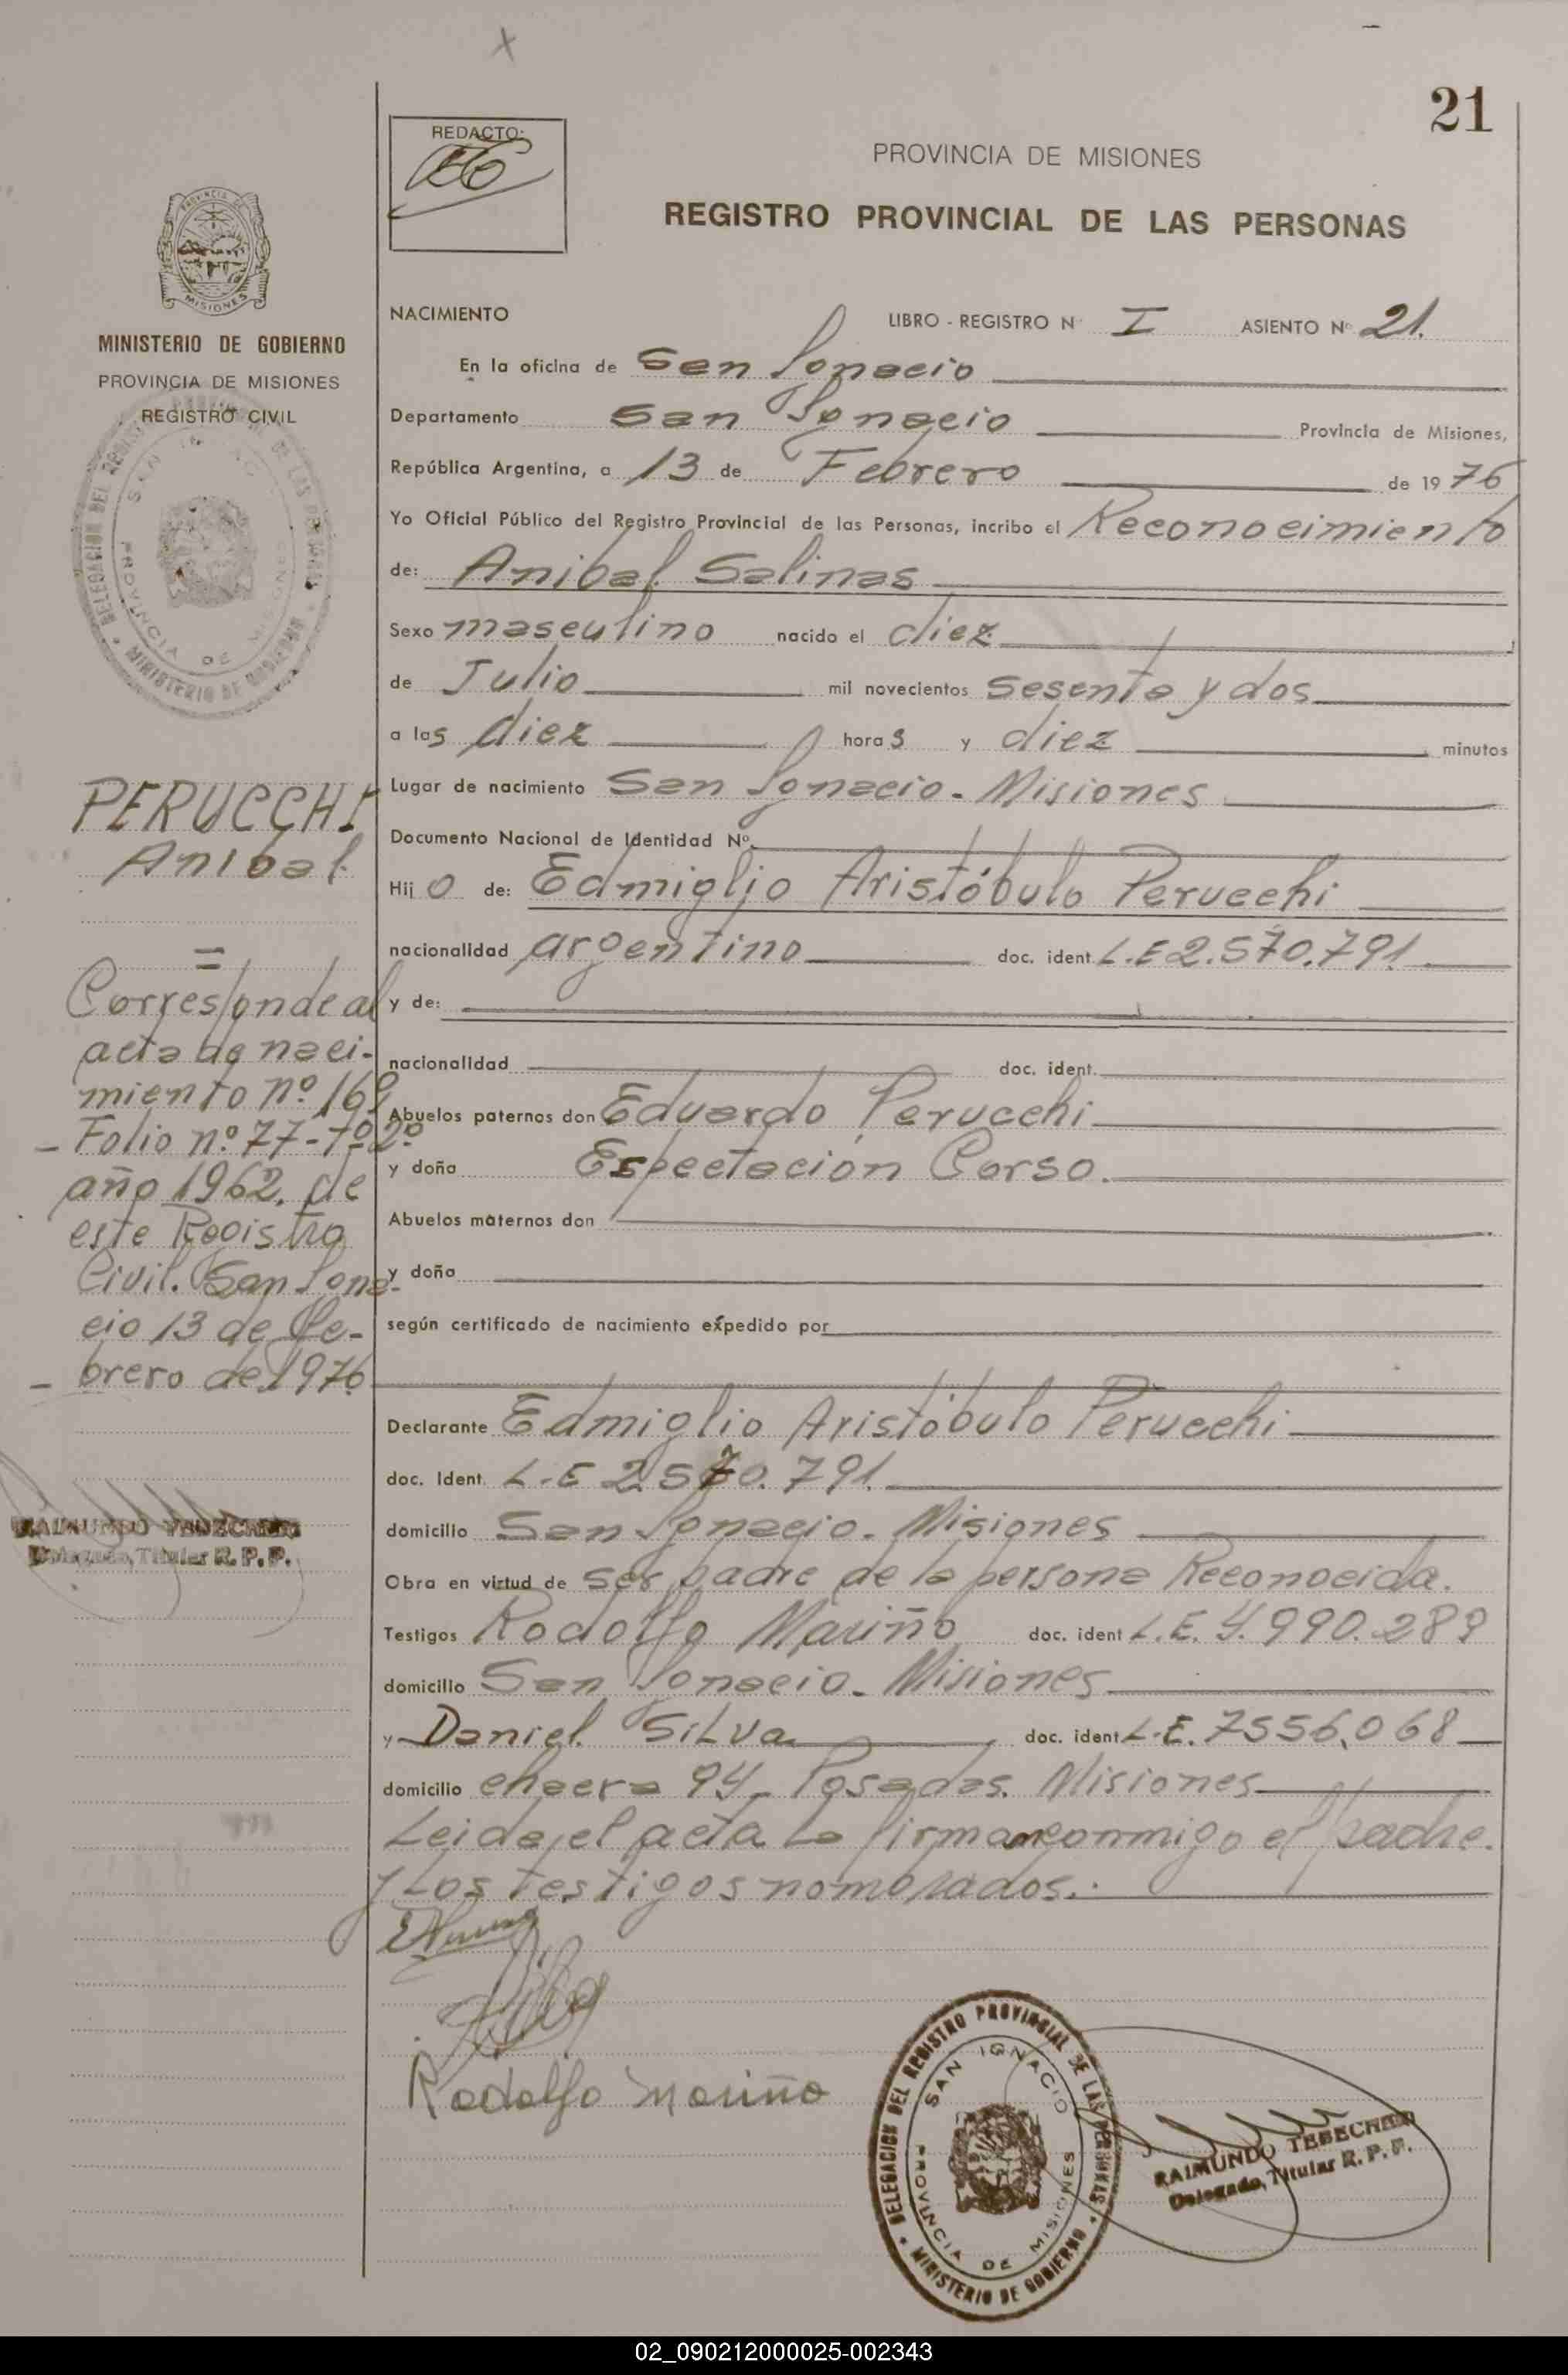 21
REDACTO:
PROVINCIA DE MISIONES
REGISTRO PROVINCIAL DE LAS PERSONAS
MISIONES
MINISTERIO DE GOBIERNO
PROVINCIA DE MISIONES
REGISTRO CIVIL
NACIMIENTO LIBRO - REGISTRO Nº I ASIENTO Nº 21.
En la oficina de San Ignacio
Departamento San Ignacio Provincia de Misiones,
República Argentina, a 13 de Febrero de 1976
Yo Oficial Público del Registro Provincial de las Personas, incribo el Reconocimiento
de: Anibal Salinas
Sexo masculino nacido el diez
de Julio mil novecientos sesenta y dos
a las diez horas y diez minutos
Lugar de nacimiento San Ignacio - Misiones
Documento Nacional de Identidad Nº
Hijo de: Edmiglio Aristóbulo Perucchi
nacionalidad argentino doc. ident L.E 2.570.791.
y de:
nacionalidad doc. ident.
Abuelos paternos don Eduardo Perucchi
y doña Espectación Corso.
Abuelos maternos don
y doña
según certificado de nacimiento expedido por
Declarante Edmiglio Aristóbulo Perucchi
doc. Ident. L.E 2.570.791.
domicilio San Ignacio. Misiones
Obra en virtud de ser padre de la persona Reconocida.
Testigos Rodolfo Mariño doc. ident L.E. 4.990.289
domicilio San Ignacio - Misiones
y Daniel Silva doc. ident L.E. 7556.068
domicilio chacra 94 - Posadas. Misiones
Leida el acta la firman conmigo el padre.
y los testigos nombrados.
Rodolfo Mariño
PERUCCHI
Anibal
Corresponde al
acta de naci-
miento nº 169
Folio nº 77 - Tº 2º
año 1962. de
este Registro
Civil. San Igna-
cio 13 de Fe-
brero de 1976
RAIMUNDO TEBECHERI
Delegado, Titular R. P. P.
DELEGACION DEL REGISTRO PROVINCIAL DE LAS PERSONAS
SAN IGNACIO
PROVINCIA DE MISIONES
MINISTERIO DE GOBIERNO
RAIMUNDO TEBECHERI
Delegado, Titular R. P. P.
02_090212000025-002343